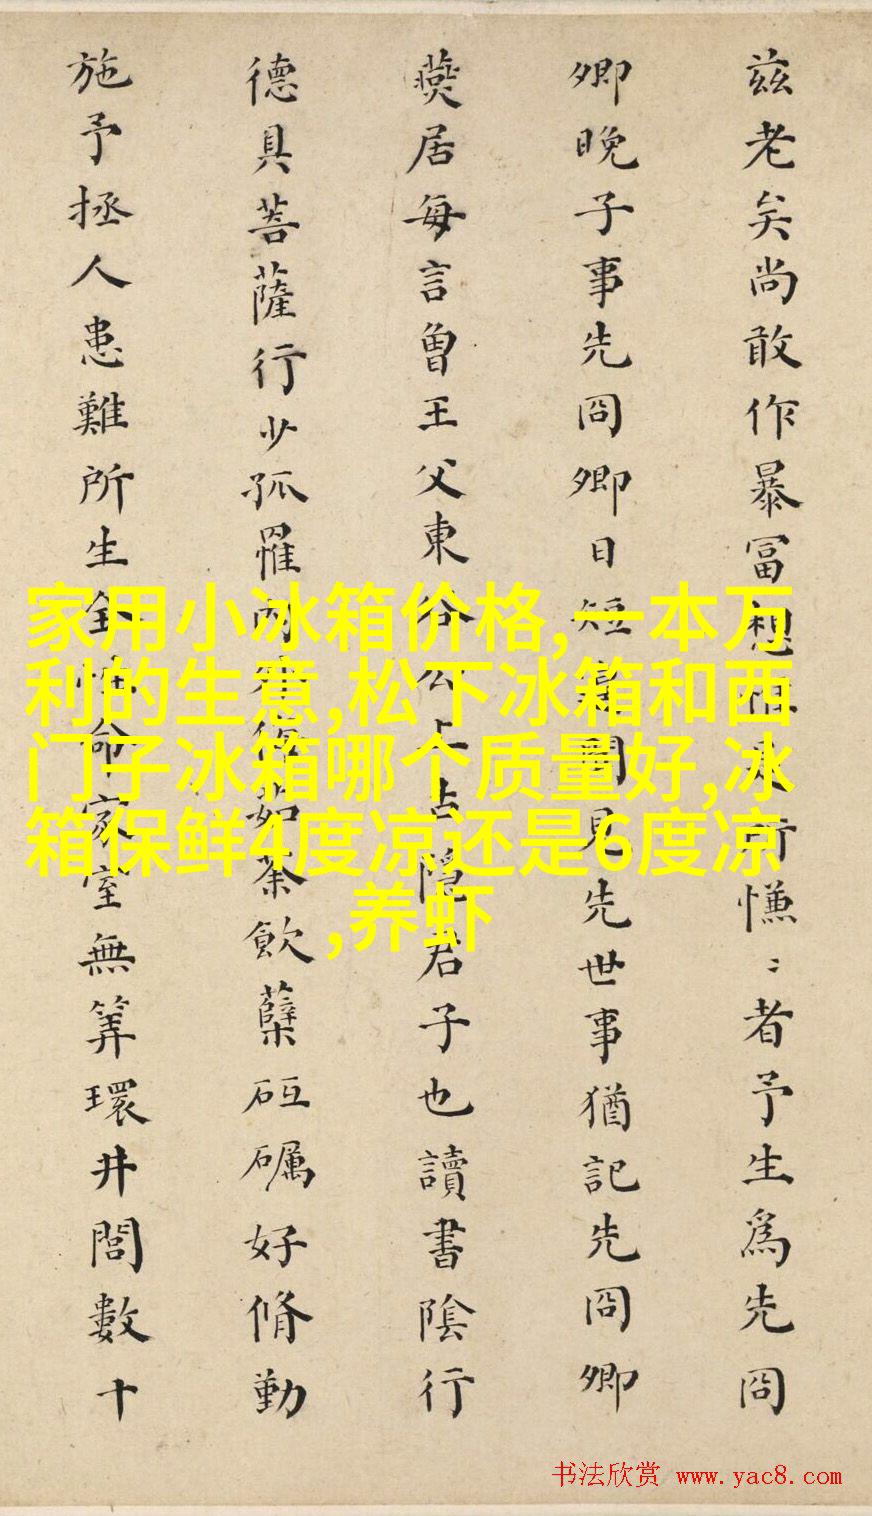 茲老矣尚敢作暴冨想是所慊〻者予生為先冏
卿晚子事先冏卿日短聞見先世事猶記先冏卿
燕居每言曾王父東谷公上古隱君子也讀書陰行
德具菩薩行少孤罹內茹荼飲蘗砥礪好脩勤
施予拯人患難所生全性命家室無筭環井閭數十
家用小冰箱价格,一本万
利的生意,松下冰箱和西
门子冰箱哪个质量好,冰
箱保鲜4度凉还是6度凉
,养虾
书法欣赏 www.yac8.com